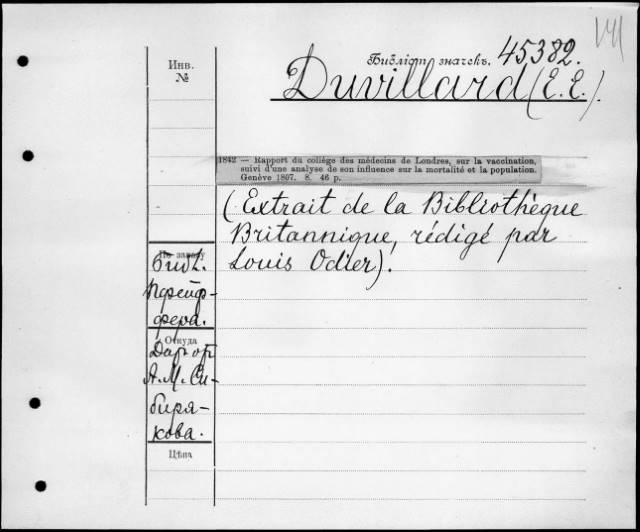 VII
Библіот. значекъ. 45382.
Инв.
№
Duvillard (E. E.).
1842 — Rapport du collège des médecins de Londres, sur la vaccination,
suivi d'une analyse de son influence sur la mortalité et la population.
Genève 1807. 8. 46 p.
(Extrait de la Bibliothèque
Britannique, rédigé par
Louis Odier).
По заказу
Библ.
Пфейф-
фера.
Откуда
Дар от
А. М. Си-
биря-
кова.
Цѣна